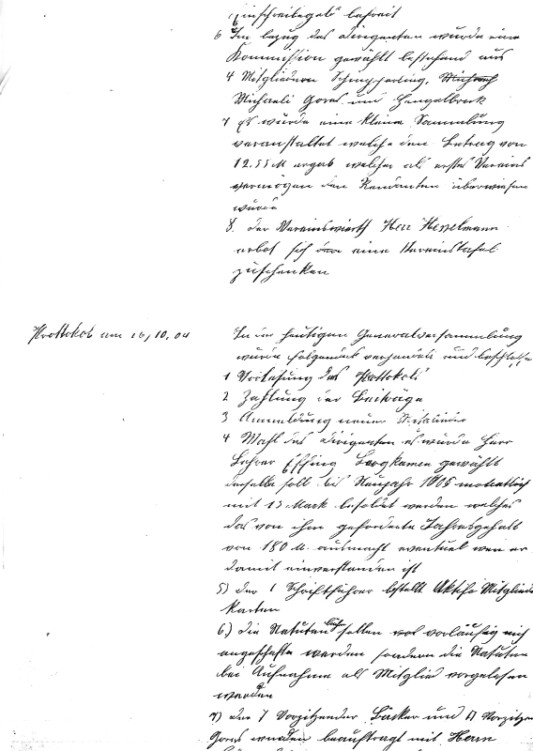 Einschreibegeld befreit
6 In bezug des Dirigenten wurde eine
Kommission gewählt bestehend aus
4 Mitgliedern
Michaeli Gores und Hengelbrock
7 Es wurde eine kleine Sammlung
veranstaltet welche den Betrag von
12.55 M ergab welcher als erstes Vereins
vermögen den Rendanten überwiesen
wurde
8. der Vereinswirth Herr Hesselmann
erbot sich eine Vereinstafel
zuschenken
Prottokol am 16,10,04
In der heutigen Generalversammlung
wurde folgendes verhandelt und beschlossen
1 Vorlesung des Prottokols
2 Zahlung der Beiträge
3 Anmeldung neuer Mitglieder
4 Wahl des Dirigenten es wurde Herr
Lehrer Effing Bergkamen gewählt
derselbe soll bis Neujahr 1905 monatlich
mit 15 Mark besoldet werden welches
das von ihm geforderte Jahresgehalt
von 180 M. ausmacht eventuel wen er
damit einverstanden ist
5) der 1 Schriftführer bestellt Aktife Mitglieds
karten
6) die Statuten sollen vorläufig nich
angeschafft werden sondern die Statuten
bei Aufnahme als Mitglied vorgelesen
werden
7) der 1 Vorsitzender Bäcker und II Vorsitzen
Gores wurden beauftragt mit Herrn